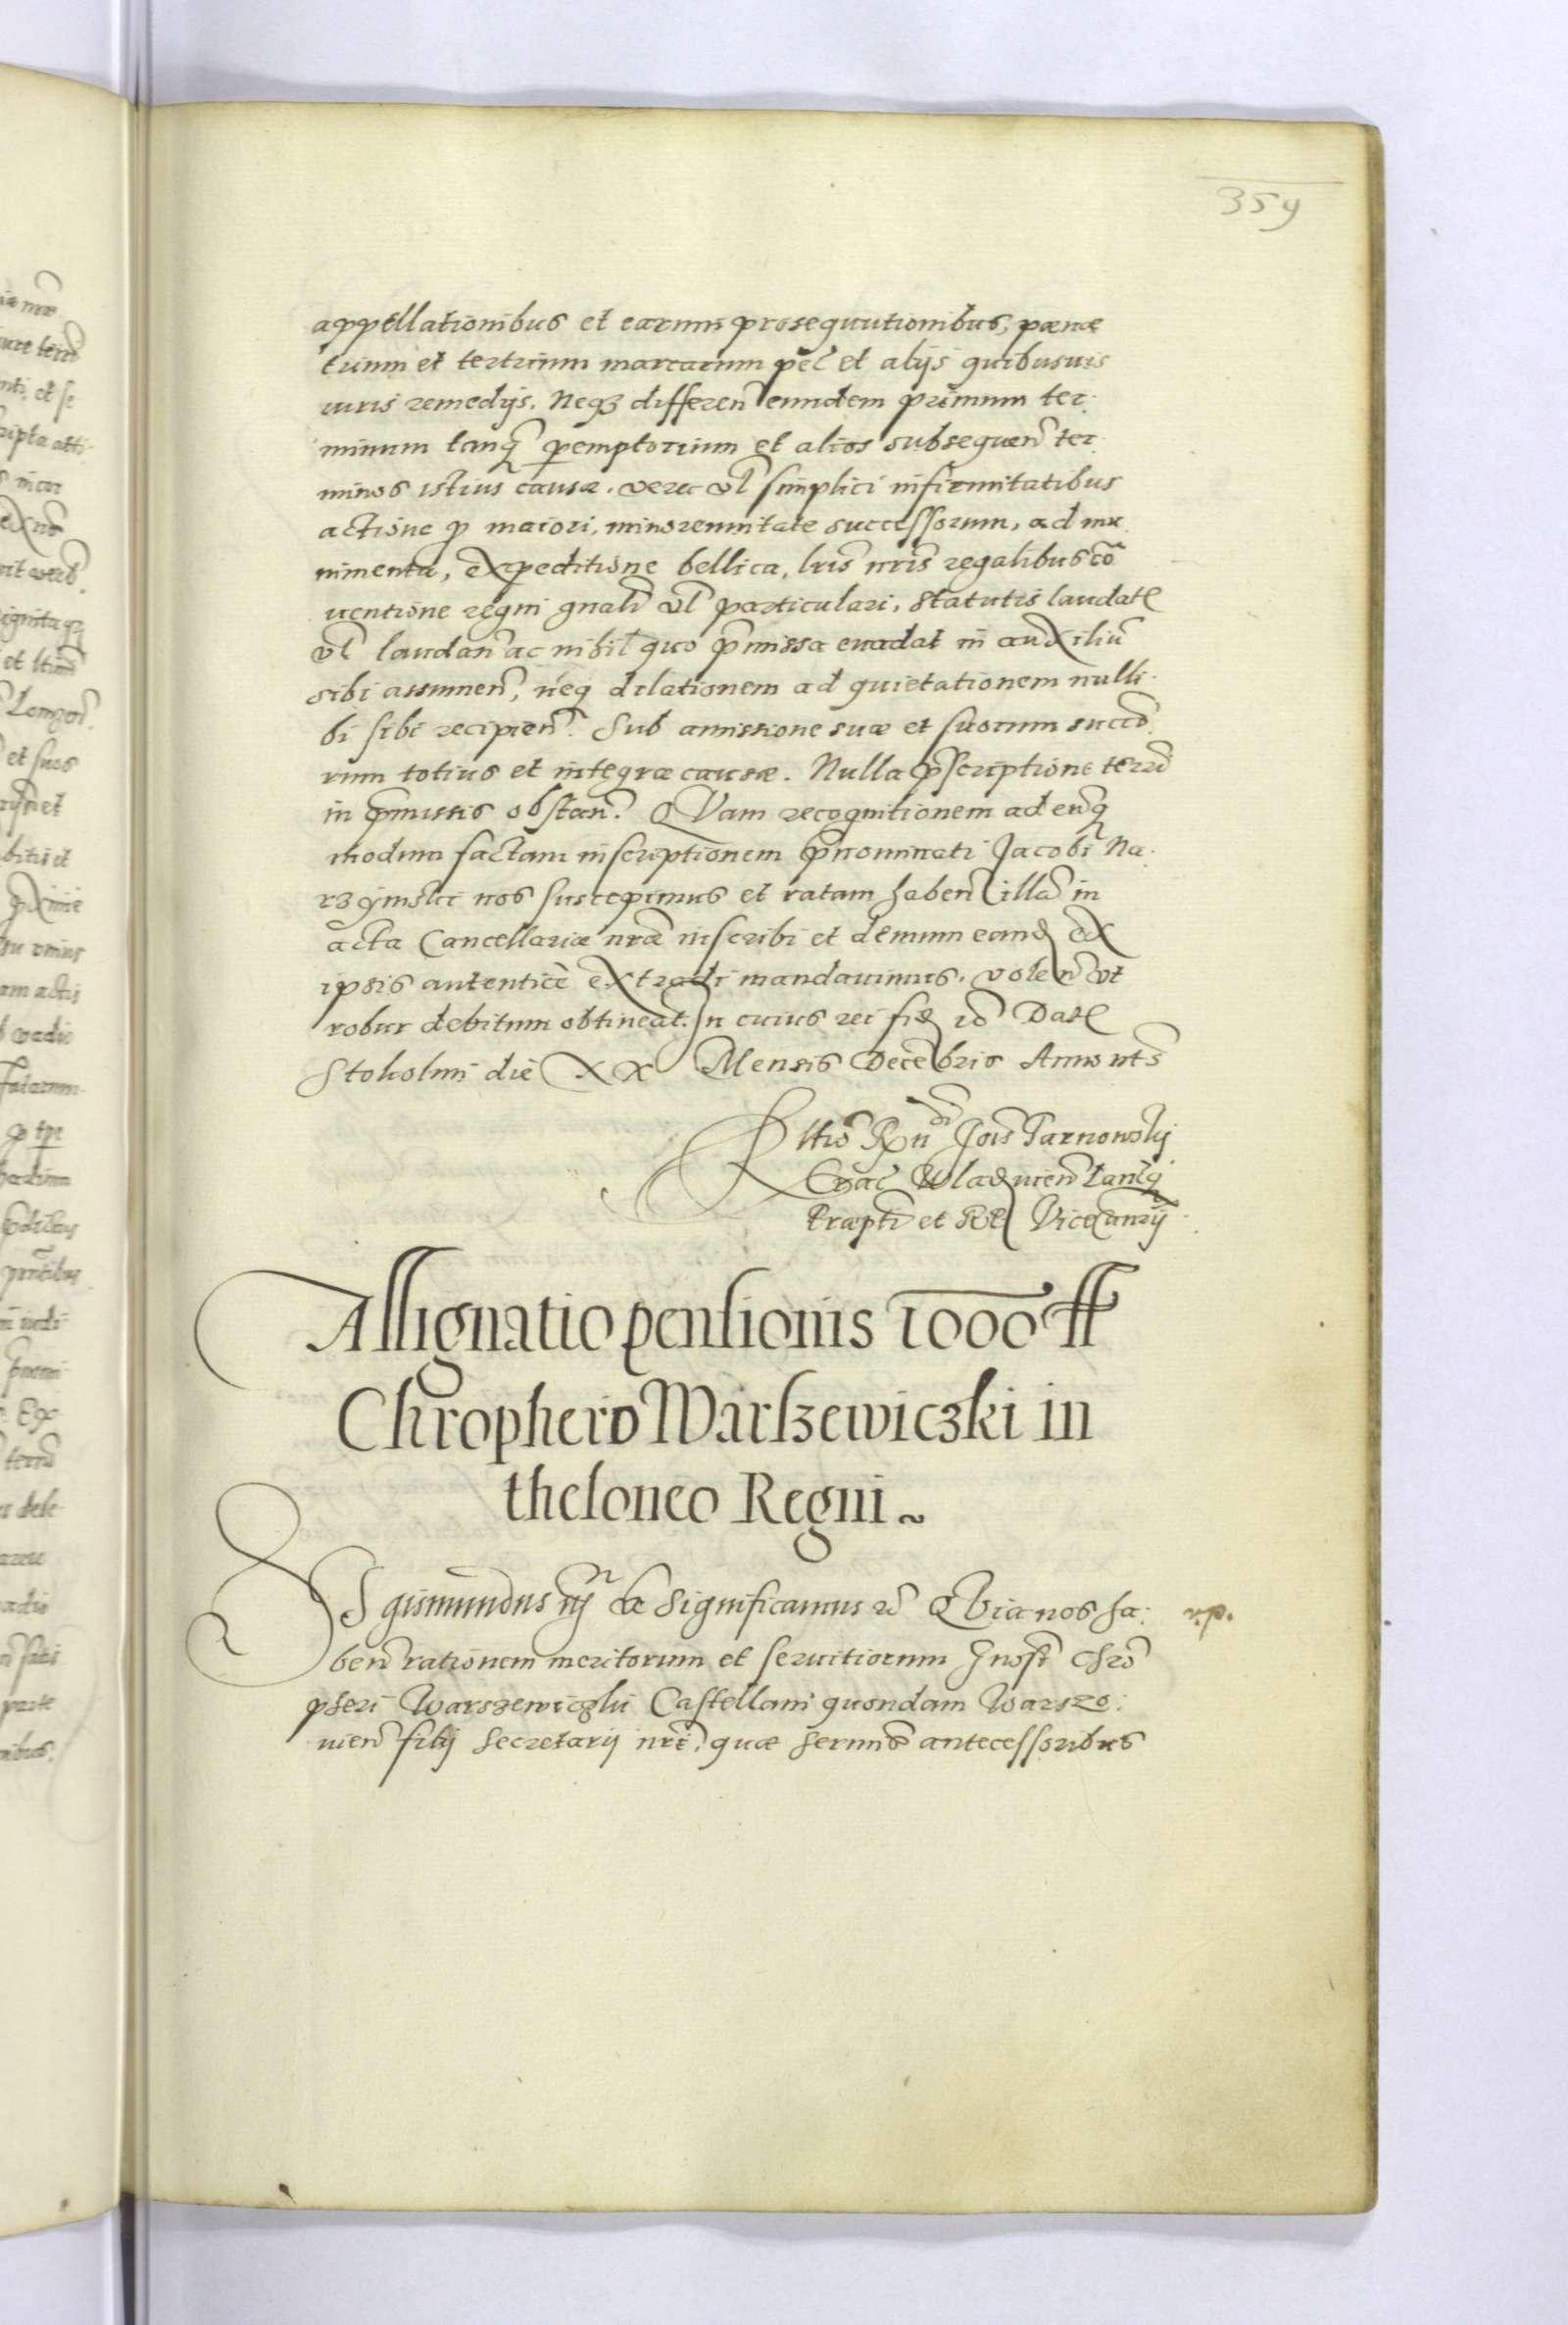 359
appellationibus et earum prosequutionibus, pœnæ
trium et trium marcarum pẽl et alijs quibusuis
iuris remedijs. Neqз differen̄ eundem primum ter-
minum tanq̃ p̱emptorium et alios subsequen̄ ter-
minos istius causæ. vera vl̄ simplici infirmitatibus
actione ꝓ maiori, minorennitate successorum, ad mu-
nimenta, expeditione bellica, lr̄is nr̄is regalibus cō
uentione regni gn̄ali vl̄ particulari, statutis laudat̄
vl̄ laudan̄ ac nihil quo p̄missa euadat in auxiliū
sibi assumen̄, neq̨ dilationem ad quietationem nulli-
bi sibi recipien̄. Sub amissione suæ et suorum succō
rum totius et integræ causæ. Nulla p̄scriptione terrī
in p̄missis obstan̄. QVam recognitionem ad eun̄q̨
modum factam inscriptionem p̄nominati Jacobi Na-
rzymski nos suscepimus et ratam haben̄ illā in
acta Cancellariæ nr̄æ inscribi et demum eand̨ ex
ipsis autenticè extradi mandauimus. volen̄ vt
robur debitum obtineat. In cuius rei fid̨ rō Dat̄
Stokolmi die XX Mensis Decēbris Anno ut s̄
R̄ltio Rn̄di Jois Tarnowskj
Crac̄ Wlad̨uien̄ Lanciq̨
Præpti et R̄ Vicecan̄rij
Assignatio pensionis 1000 ff
Chrophero Warszewiczki in
theloneo Regni ~
SIgismundus iij &c Significamus rō QVia nos ha- v.p.
ben̄ rationem meritorum et seruitiorum Gn̄osi Chrō
pheri Warszewiczki Castellani quondam Warszo-
uien̄ filij Secretarij nr̄i, quæ Serm̄is antecessoribus